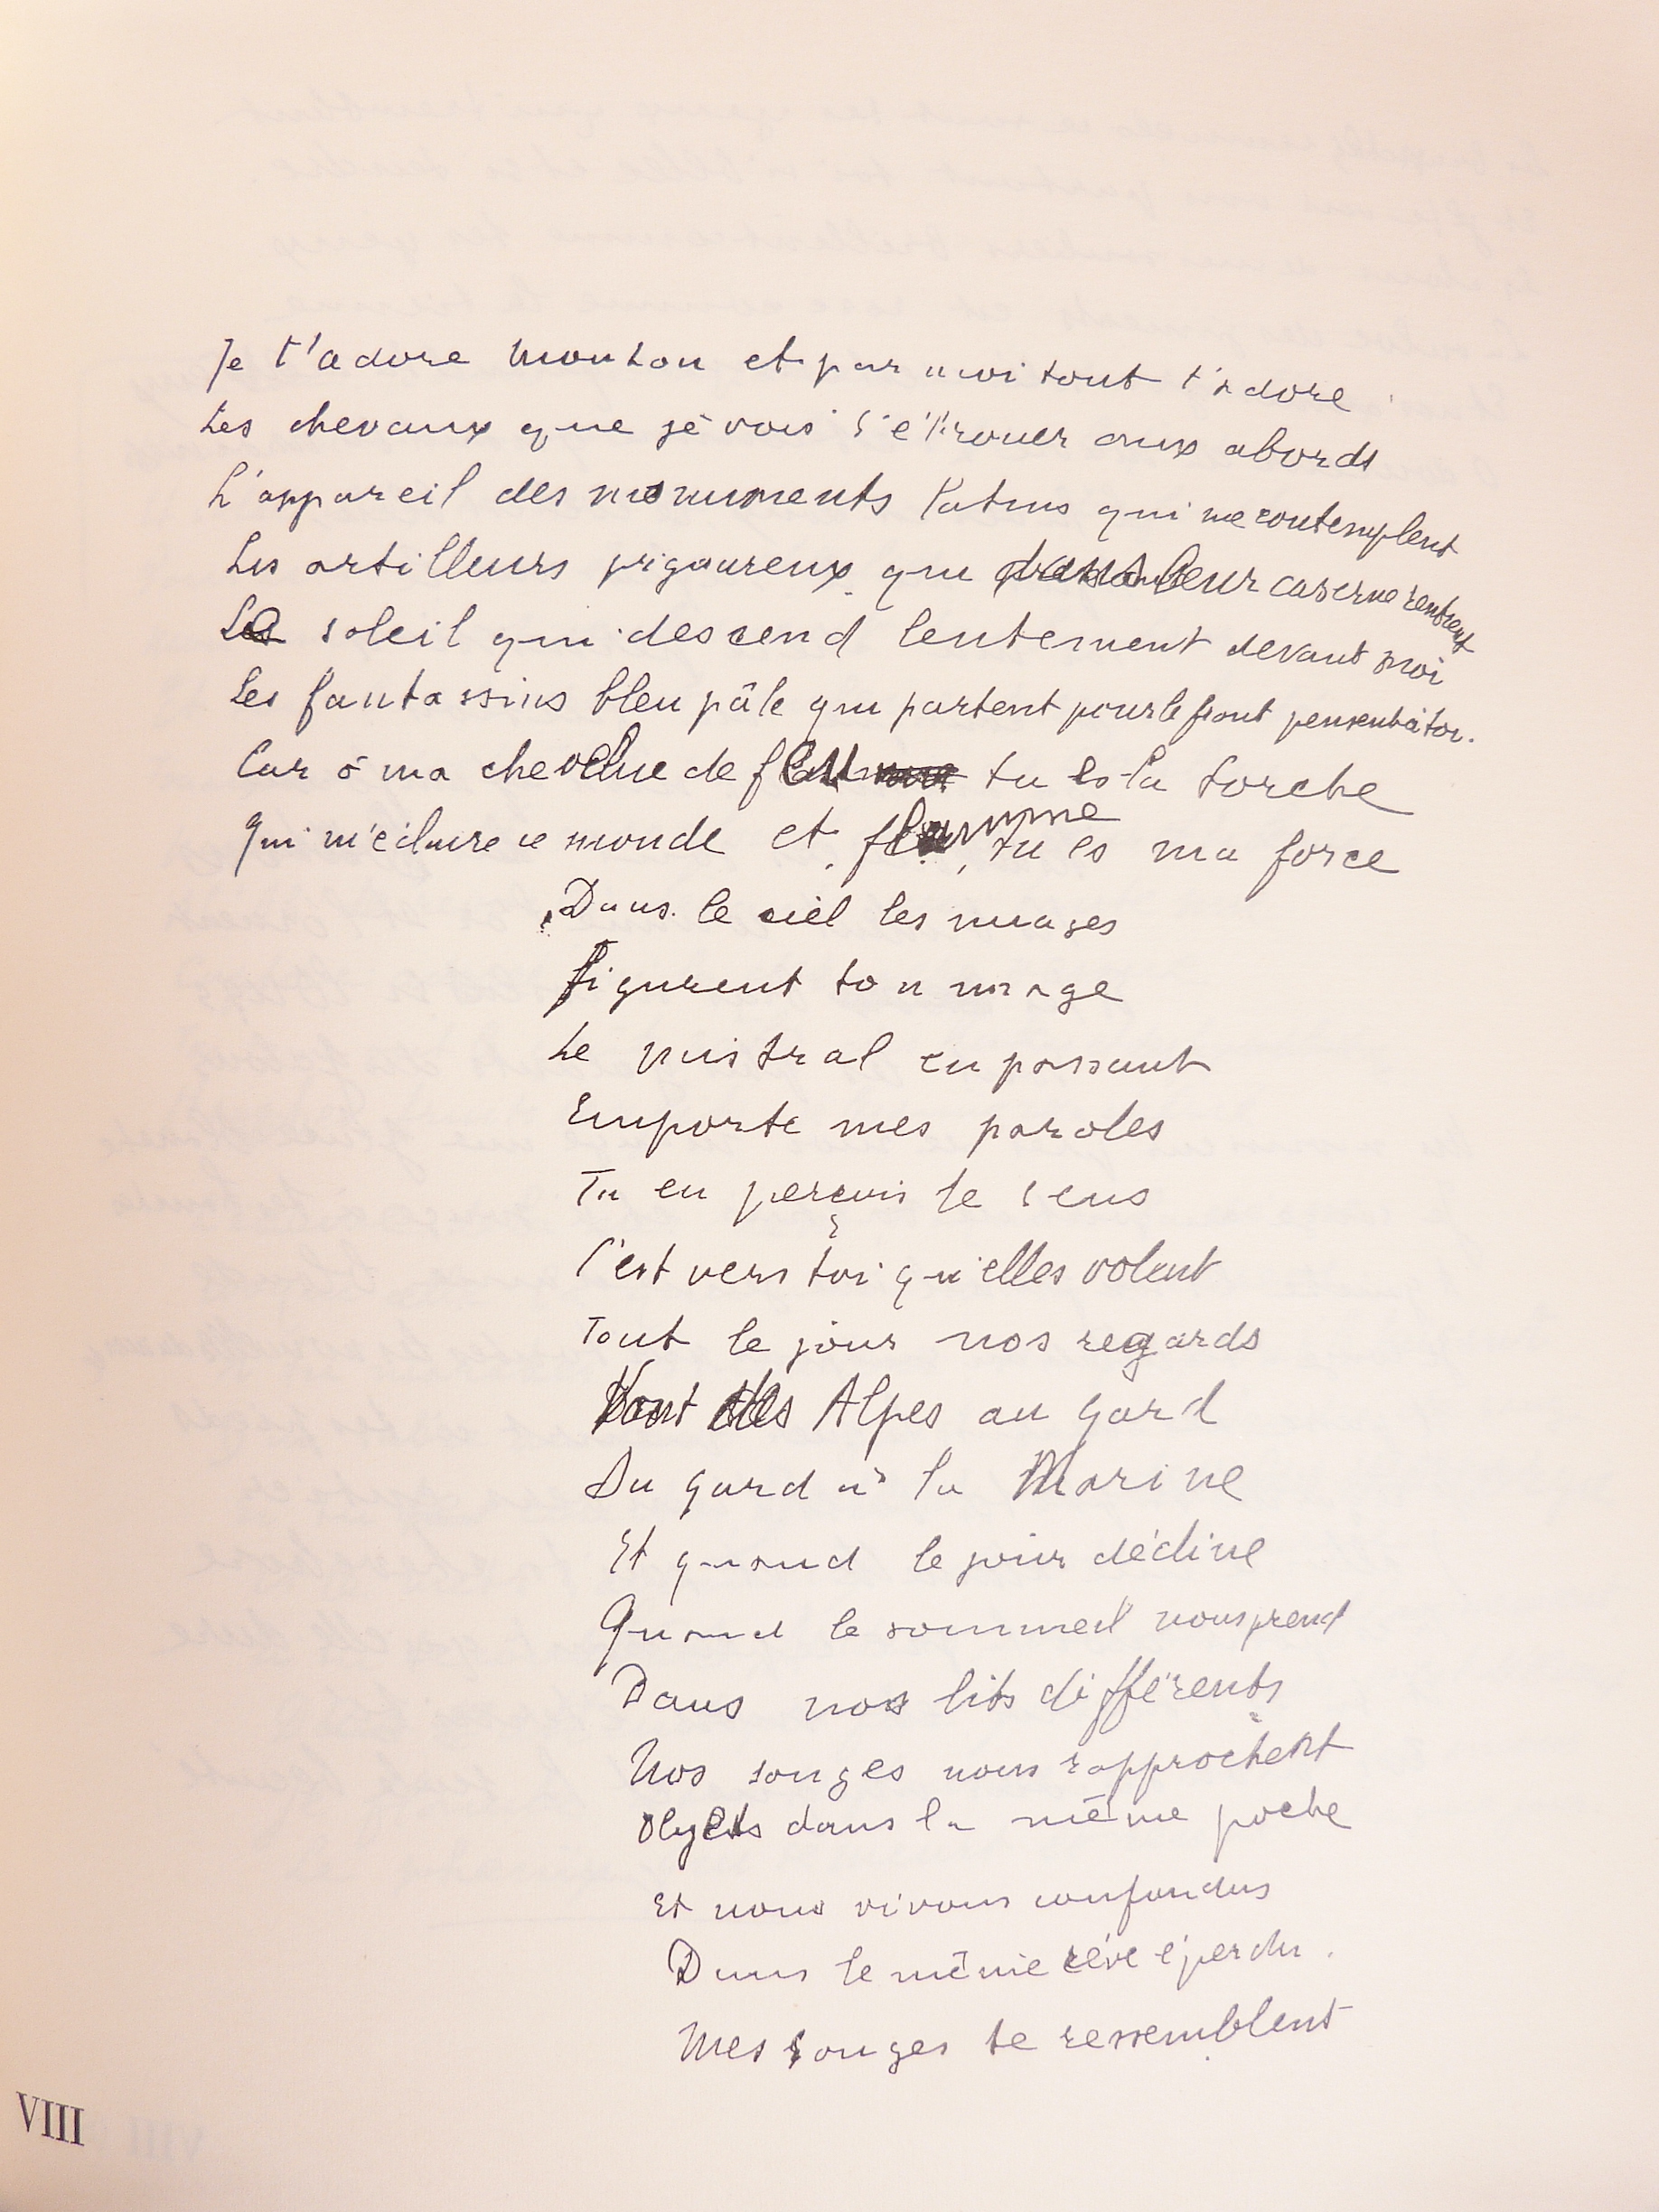 Je t'adore mon Lou et par moi tout t'adore
Les chevaux que je vois s'ébrouer aux abords
L'appareil des monuments latins qui me contemplent
Les artilleurs vigoureux qui dans leur caserne rentrent
Le soleil qui descend lentement devant moi
Les fantassins bleu pâle qui partent pour le front pensent à toi.
Car ô ma chevelue de feu tu es la torche
Qui m'éclaire ce monde et flamme, tu es ma force
Dans le ciel les nuages
Figurent ton image
Le mistral en passant
Emporte mes paroles
Tu en perçois le sens
C'est vers toi qu'elles volent
Tout le jour nos regards
Vont des Alpes au Gard
Du Gard à la Marine
Et quand le jour décline
Quand le sommeil nous prend
Dans nos lits différents
Nos songes nous rapprochent
Objets dans la même poche
Et nous vivons confondus
Dans le même rêve éperdu.
Mes songes te ressemblent
VIII